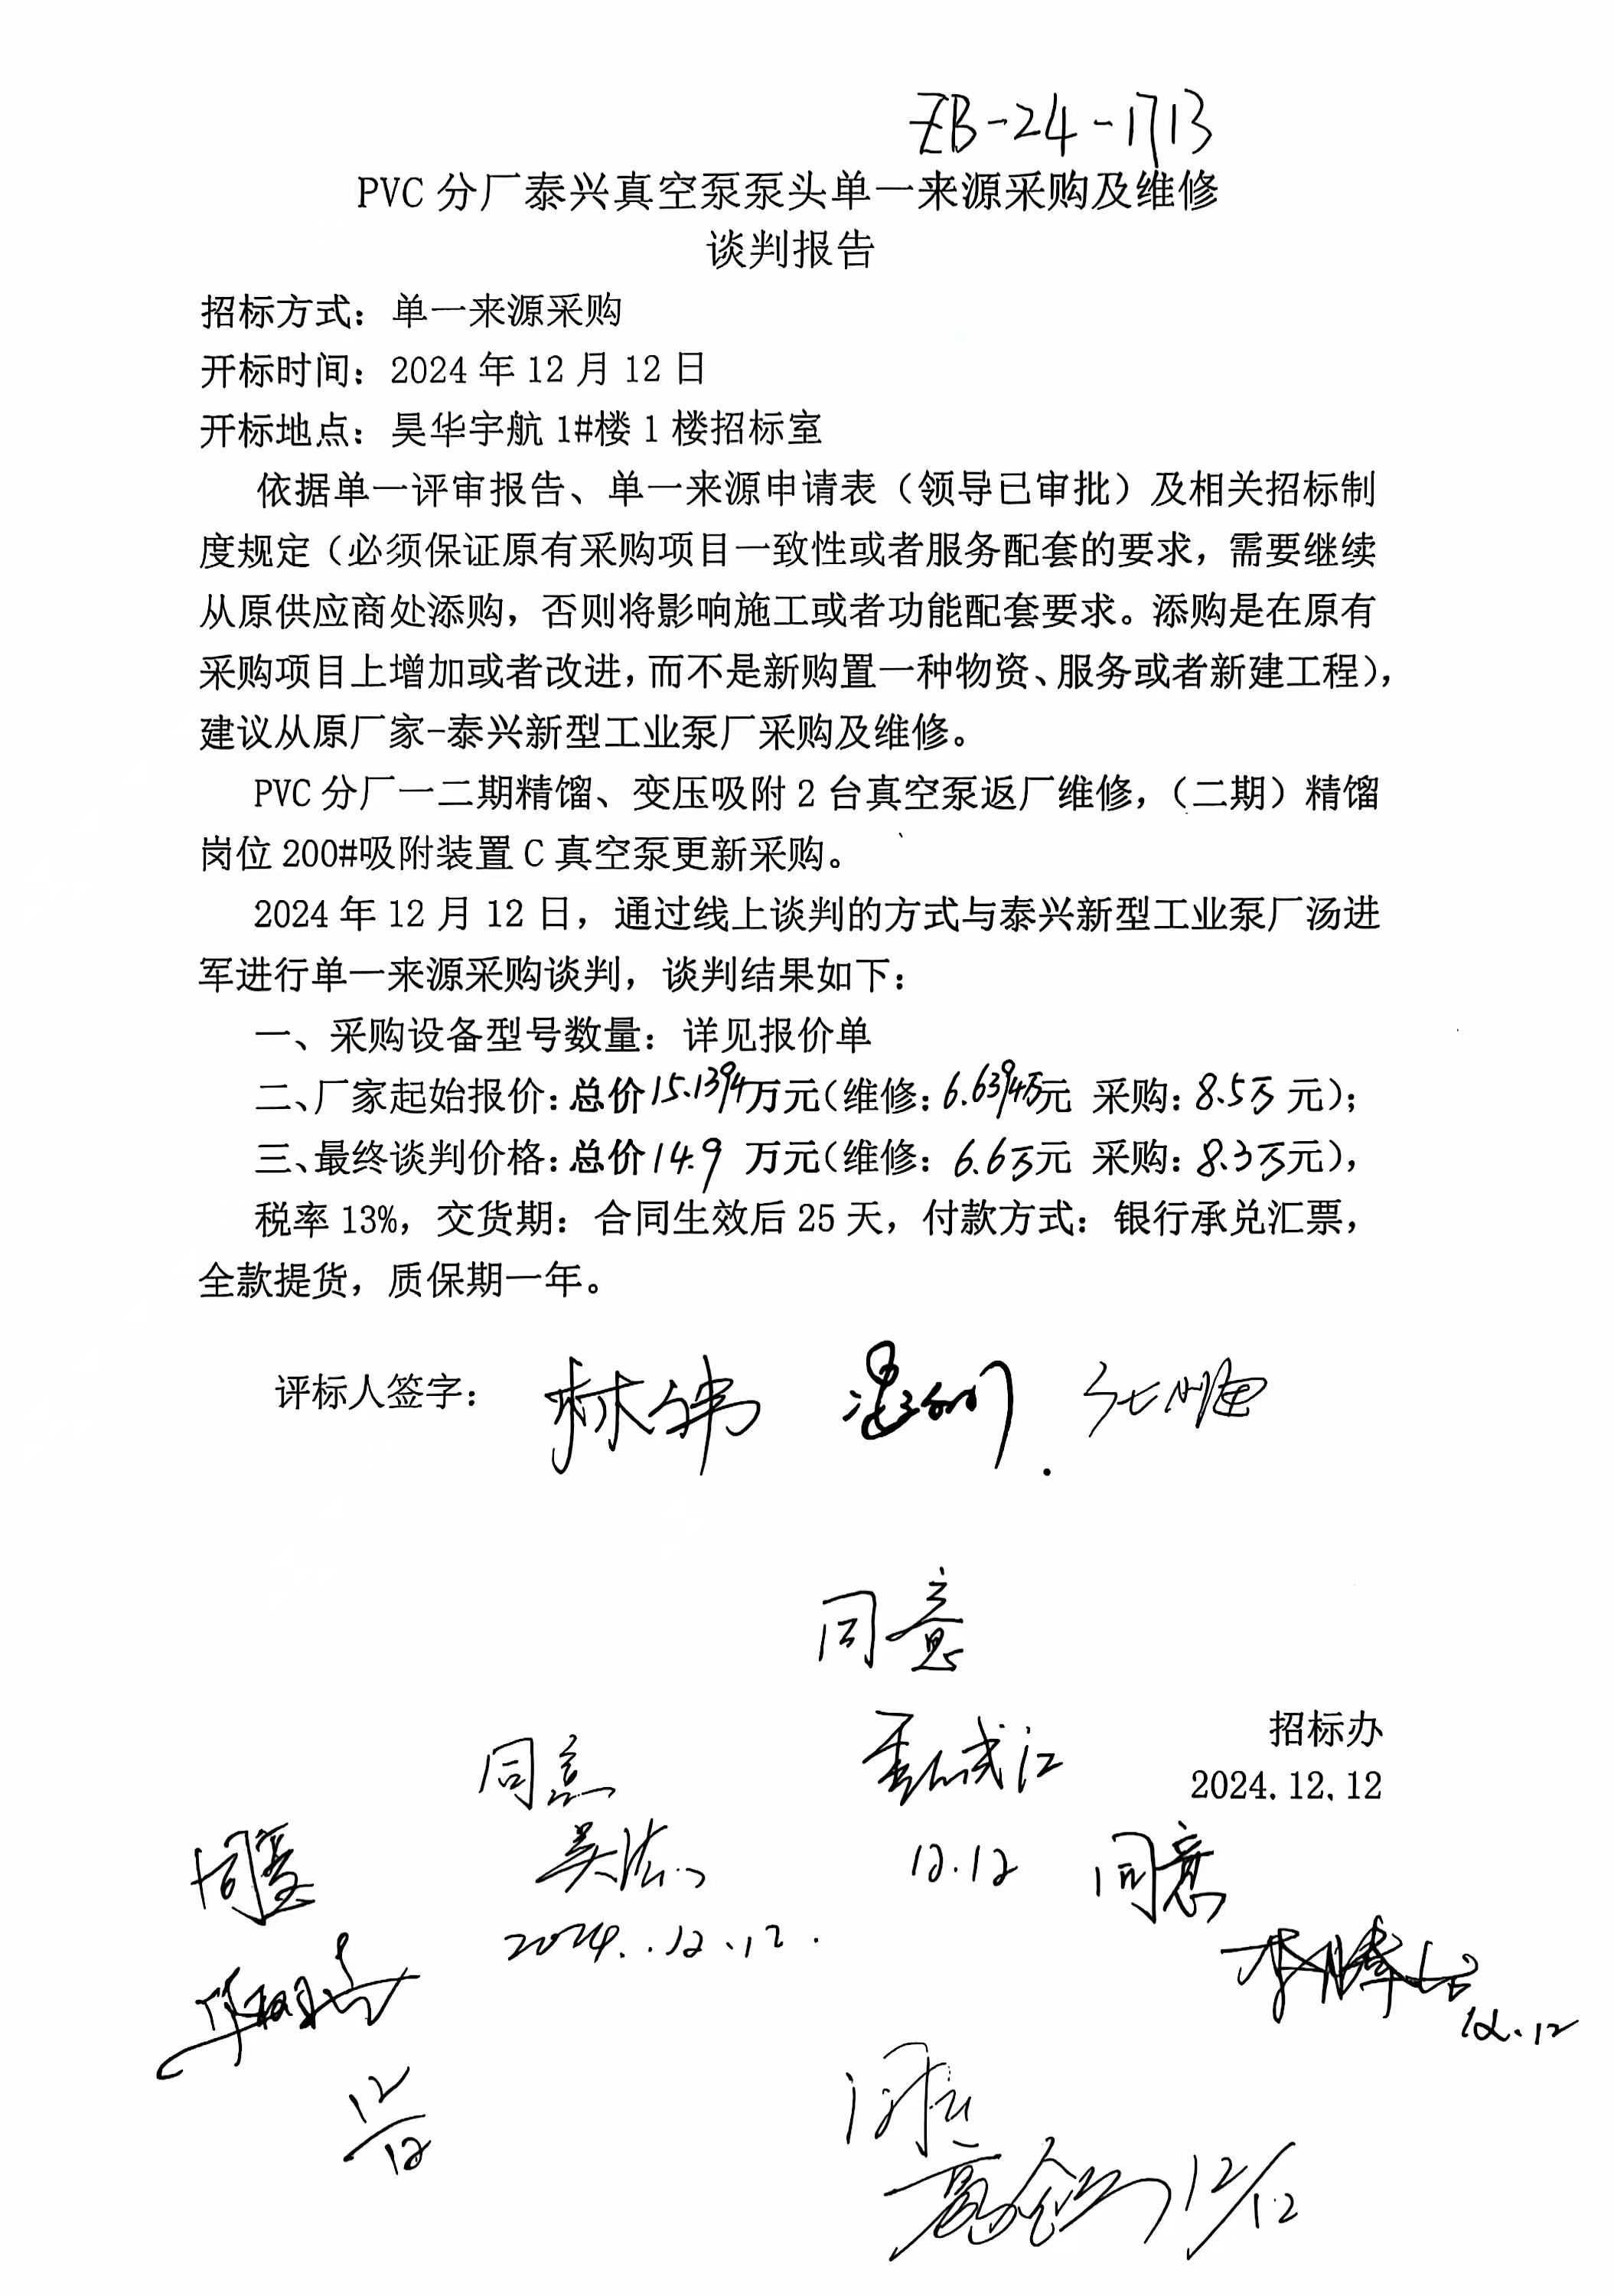 ZB-24-1713
PVC 分厂泰兴真空泵泵头单一来源采购及维修
谈判报告
招标方式：单一来源采购
开标时间：2024 年 12 月 12 日
开标地点：昊华宇航 1#楼 1 楼招标室
依据单一评审报告、单一来源申请表（领导已审批）及相关招标制
度规定（必须保证原有采购项目一致性或者服务配套的要求，需要继续
从原供应商处添购，否则将影响施工或者功能配套要求。添购是在原有
采购项目上增加或者改进，而不是新购置一种物资、服务或者新建工程），
建议从原厂家-泰兴新型工业泵厂采购及维修。
PVC 分厂一二期精馏、变压吸附 2 台真空泵返厂维修，（二期）精馏
岗位 200#吸附装置 C 真空泵更新采购。
2024 年 12 月 12 日，通过线上谈判的方式与泰兴新型工业泵厂汤进
军进行单一来源采购谈判，谈判结果如下：
一、采购设备型号数量：详见报价单
二、厂家起始报价：总价15.1394万元（维修：6.6394万元 采购：8.5万元）；
三、最终谈判价格：总价14.9 万元（维修：6.6万元 采购：8.3万元），
税率 13%，交货期：合同生效后 25 天，付款方式：银行承兑汇票，
全款提货，质保期一年。
评标人签字：林伟
同意
招标办
2024.12.12
同意
12.12
同意
同意
2024.12.12.
12.12
12/12
同意
12/12